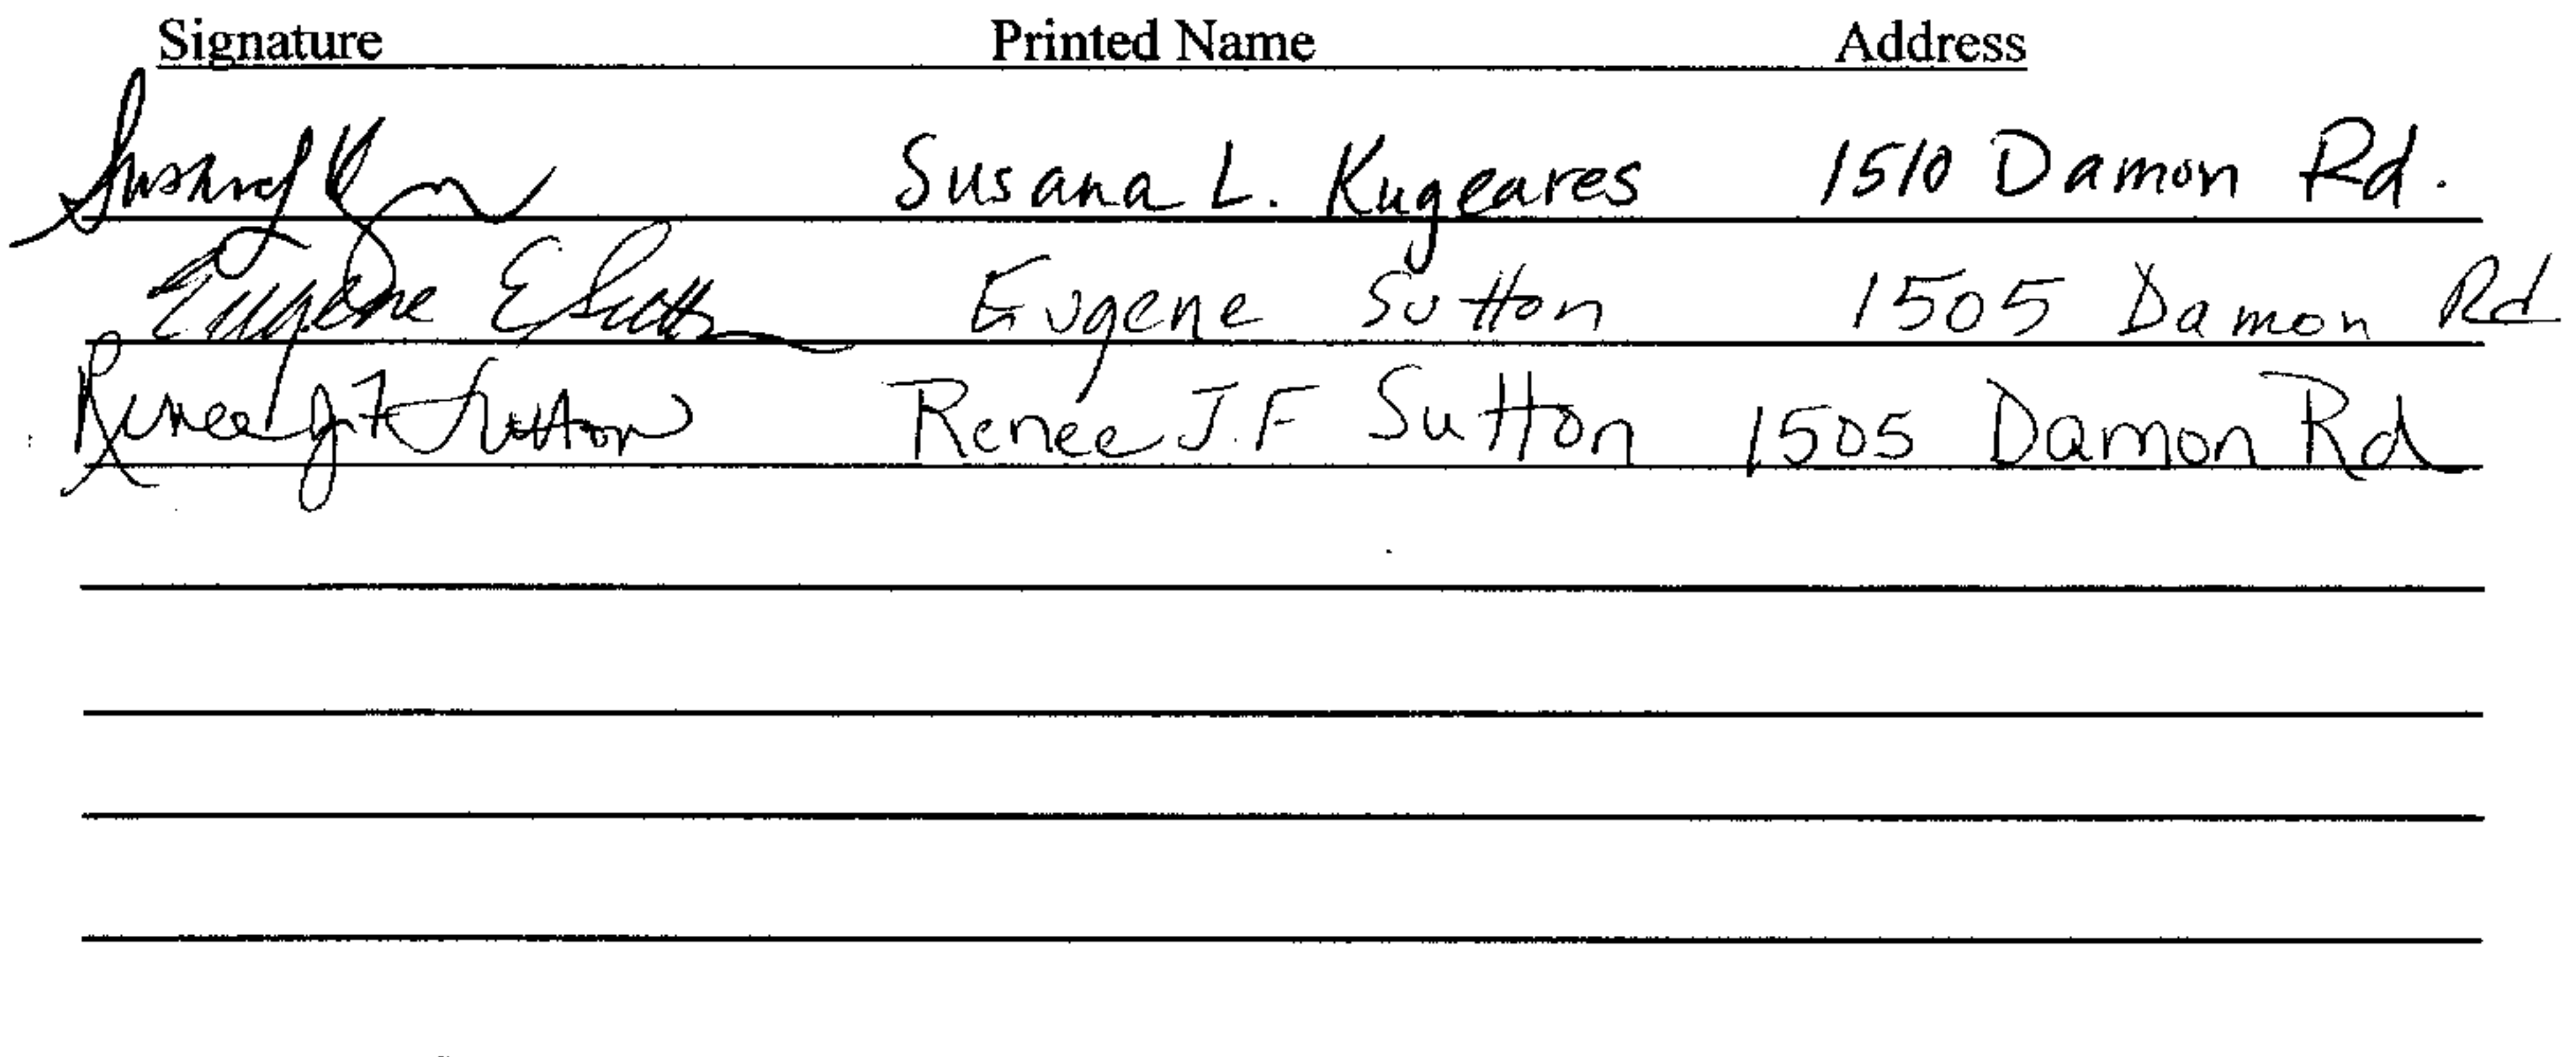 Signature Printed Name Address
Susana L. Kugeares 1510 Damon Rd.
Eugene E Sutton Eugene Sutton 1505 Damon Rd
Renee J F Sutton Renee J.F Sutton 1505 Damon Rd